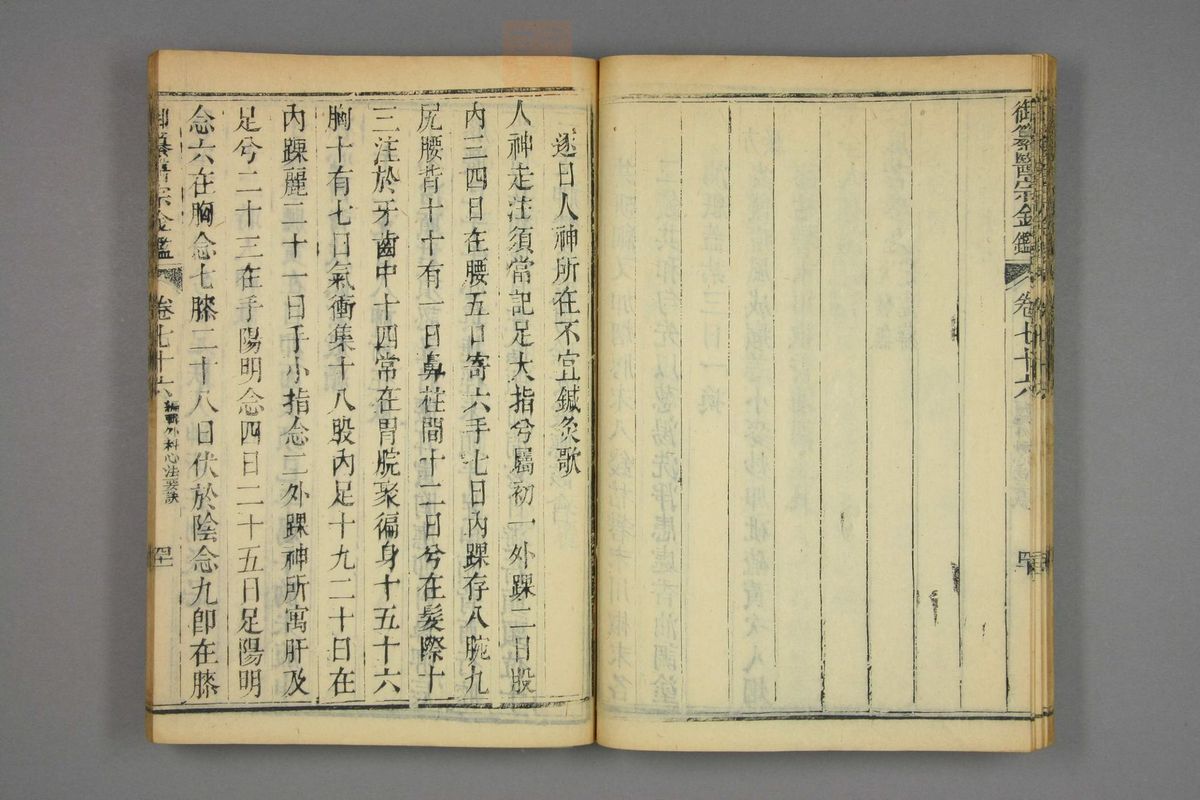 御纂醫宗金鑑
卷七十六
逐日人神所在不宜鍼灸歌
人神走注須當記足大指兮屬初一外踝二日股
內三四日在腰五口寄六手七日內踝存八腕九
尻腰背十十有一日鼻柱間十二日兮在髮際十
三注於牙齒中十四常在胃脘聚徧身十五十六
胸十有七日氣衝集十八股內足十九二十日在
內踝麗二十一日手小指念二外踝神所寓肝及
足兮二十三在手陽明念四日二十五日足陽明
念六在胸念七膝二十八日伏於陰念九卽在膝
御纂醫宗金鑑
卷七十六
編輯外科心法要訣